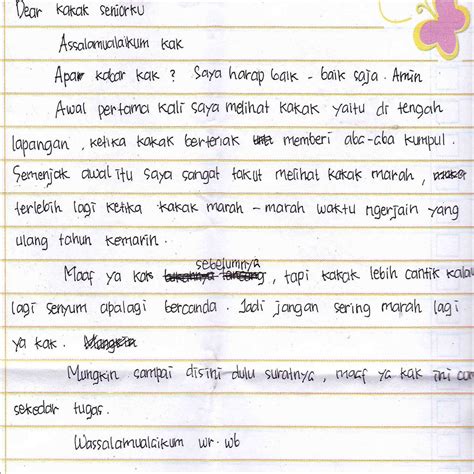 Dear kakak seniorku
Assalamualaikum kak
Apa kabar kak ? Saya harap baik - baik saja. Amin
Awal pertama kali saya melihat kakak yaitu di tengah
lapangan , ketika kakak berteriak memberi aba-aba kumpul.
Semenjak awal itu saya sangat takut melihat kakak marah ,
terlebih lagi ketika kakak marah - marah waktu ngerjain yang
ulang tahun kemarin.
sebelumnya
Maaf ya kak , tapi kakak lebih cantik kalau
lagi senyum apalagi bercanda. Jadi jangan sering marah lagi
ya kak. Mungkin
Mungkin sampai disini dulu suratnya , maaf ya kak ini
sekedar tugas.
Wassalamualaikum wr. wb